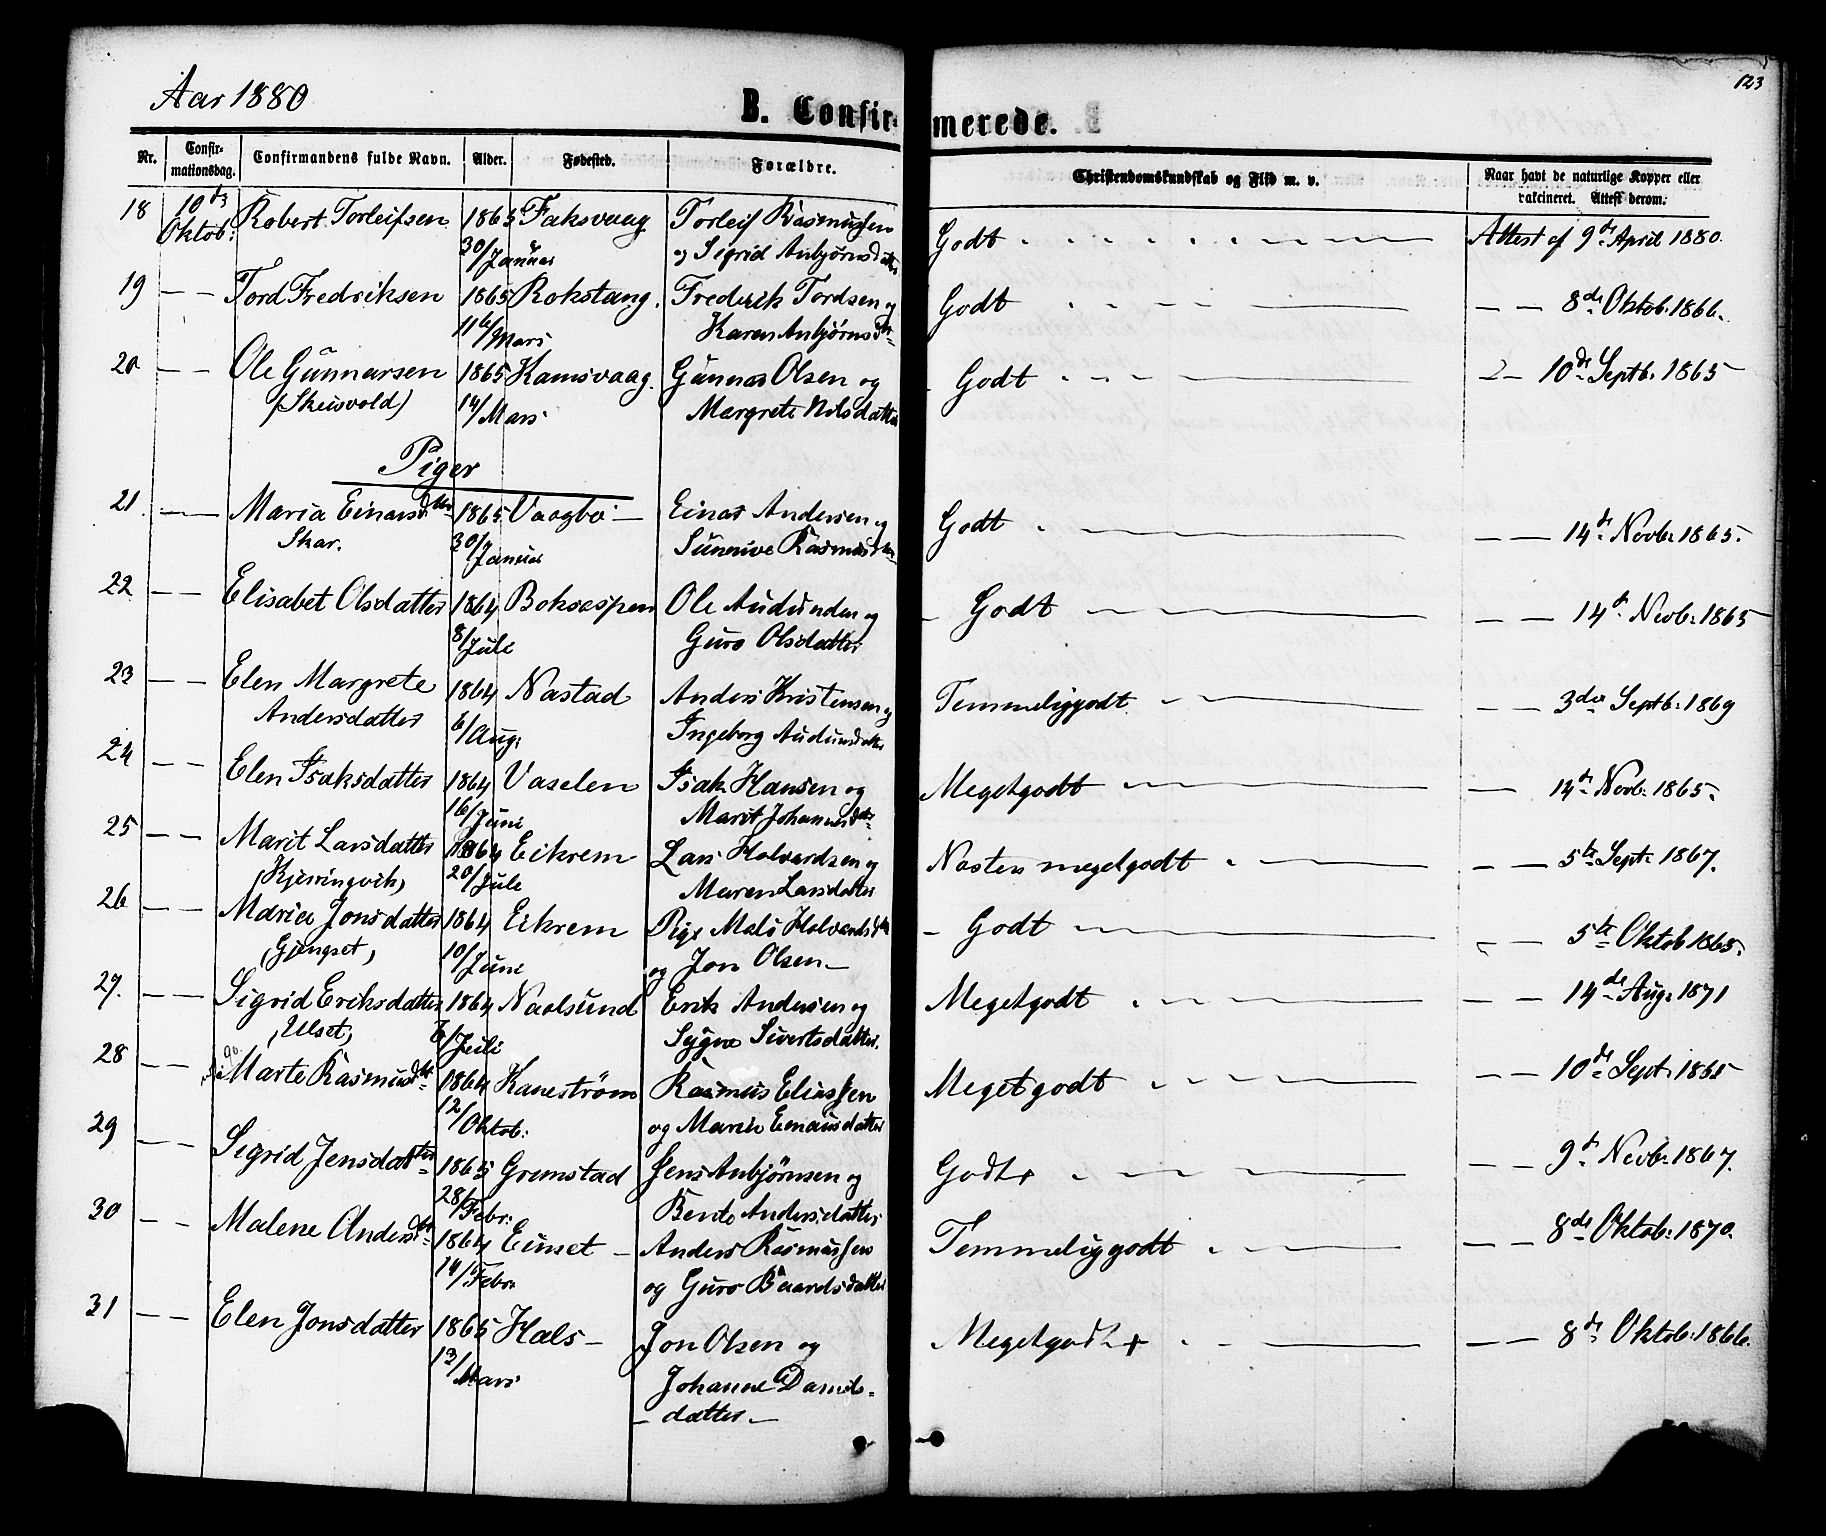 Aar 1880
123
B. Confirmerede.
Nr. Confirmationsdag. Confirmandens fulde Navn. Alder. Fødested. Forældre. Christendomskundskab og Flid m. v. Naar havt de naturlige Kopper eller vakcineret. Attest derom.
18 10de Robert Torleifsen 1865 Faksvaag Torleif Rasmussen Godt Attest af 9de April 1880.
Oktob: 30/Januar og Sigrid Anbjørnsdatter
19 — — Tord Fredriksen 1865 Rokstang. Frederik Tordsen og Godt — — 8de Oktob. 1866.
Mars Karen Anbjørnsdtr
20 — — Ole Gunnarsen 1865 Kamsvaag. Gunnar Olsen og Godt — 10de Septb. 1865
14/Mars Margrete Nilsdatter
Piger
21 — — Maria Einarsdtr 1865 Vaagbø — Einar Andersen og Godt — — 14de Novbr 1865.
Skar. 30/Januar Sunnive Rasmusdtr
22 — — Elisabet Olsdatter 1864 Boksaspen Ole Audunden og Godt — — 14de Novb: 1865
8/Juli Guro Olsdatter
23 — — Elen Margrete 1864 Nastad Anders Kristensen og Temmeliggodt — — 3die Septb. 1869
Andersdatter 6/Aug: Ingeborg Audunsdatter
24 — — Elen Isaksdatter 1864 Vaselen Isak Hansen og Megetgodt — 14de Novb. 1865.
16/Juni Marit Johannesdtr
25 — — Marit Larsdatter 1864 Eikrem Lars Halvardsen og Næsten megetgodt — — 5te Sept: 1867.
(Kjerringvik) 20/Jule Maren Larsdatter
26 — — Maria Jonsdatter 1864 Eikrem Pige Mali Halvardsdtr Godt — 5te Oktob 1865.
10/Juni og Jon Olsen —
27. — — Sigrid Eriksdatter 1864 Naalsund Erik Andersen og Megetgodt — — 14de Aug: 1871
(Ulset) /Juli Sygne Sivertsdatter.
28 — — Marte Rasmusdtr 1864 Kanestrøm Rasmus Eliassen Megetgodt — — 10de Sept. 1865
12/Oktob: og Marie Einarsdatter
29 — — Sigrid Jensdatter 1865 Gremstad Jens Anbjörnsen og Godt — — 9de Novb. 1867.
28/Febr: Berete Andersdatter
30 — — Malene Andersdtr 1864 Einset — Anders Rasmussen Temmeliggodt — — 8de Oktob: 1870.
14/Febr og Guro Baardsdatter
31 — — Elen Jonsdatter 1865 Hals — Jon Olsen og Megetgodt + — — 8de Oktob: 1866.
13/Mars Johanne Daniels-
— datter —